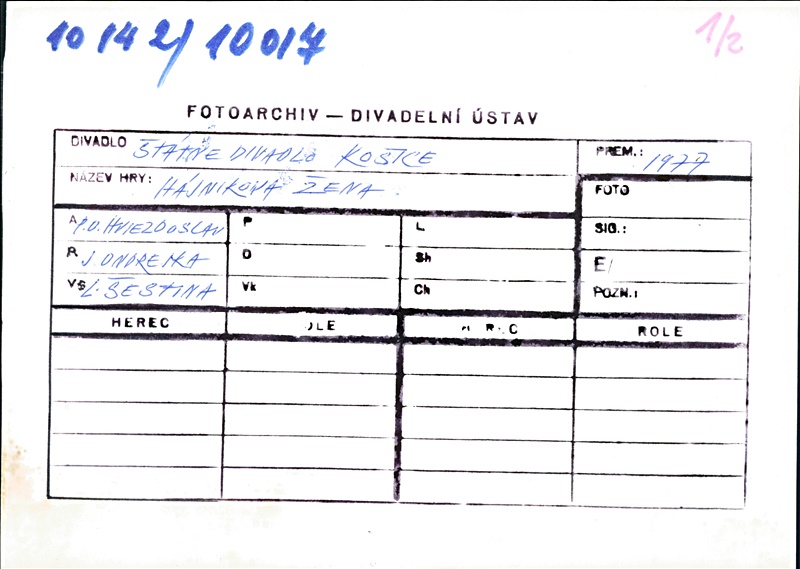 10142/10017
1/2
FOTOARCHIV — DIVADELNÍ ÚSTAV
DIVADLO ŠTÁTNE DIVADLO KOŠICE
PREM.: 1977
NÁZEV HRY: HÁJNIKOVA ŽENA
FOTO
A P.O. HVIEZDOSLAV P L SIG.:
R J. ONDREJKA D Sh E/
VS L. ŠESTINA Vk Ch POZN.:
HEREC ROLE